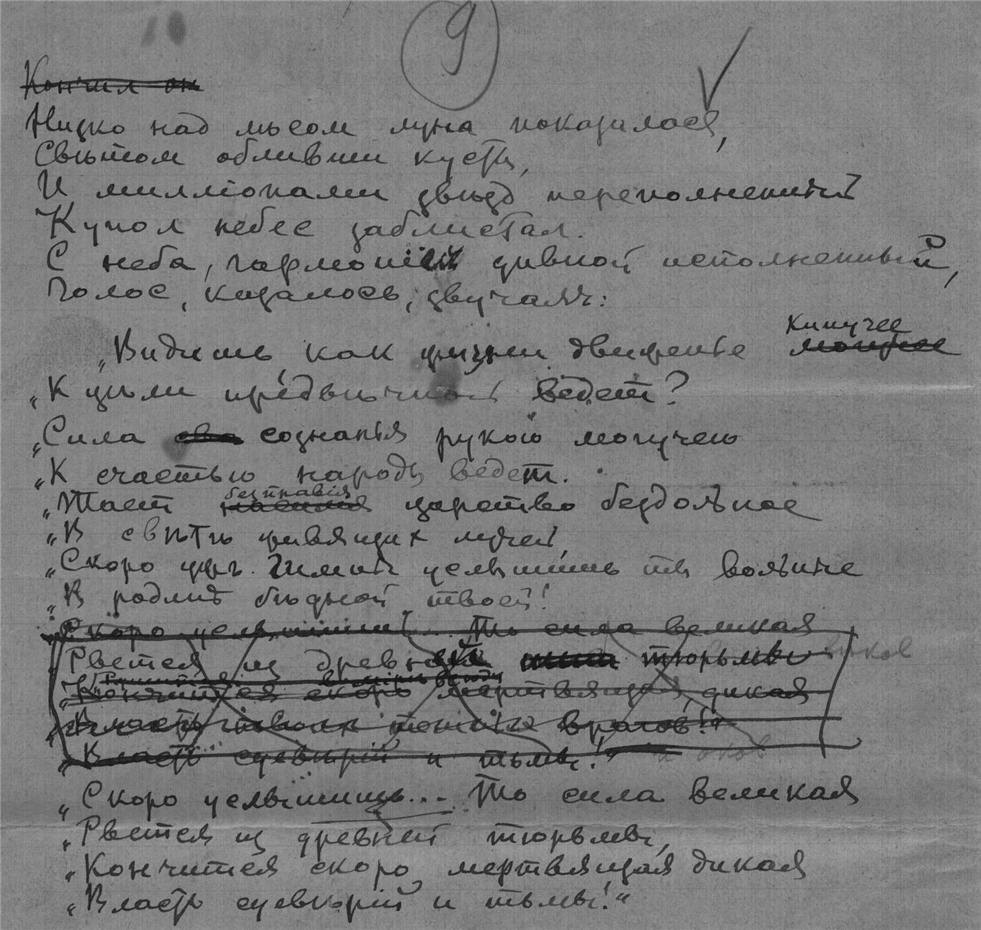 9
Кончил он
Низко над лѣсом луна показалася,
Свѣтом обливши кусты,
И милліонами звѣзд переполненный
Купол небес заблистал.
С неба, гармоніи дивной исполненный,
Голос, казалось, звучалъ:
кипучее
„Видишь как жизни движенье могучее
„К цѣли предвѣчной ведет?
„Сила сознанія рукою могучею
„К счастью народы ведет.
безправія
„Тает насилія царство бездольное
„В свѣтѣ живящих лучей,
„Скоро ужь гимны услышишь ты вольные
„В родинѣ бѣдной твоей!
„Скоро услышишь... То сила великая
„Рвется из древней тюрьмы
оков
„Кончится скоро мертвящая дикая
„Власть врагов!"
„Власть суевѣрій и тьмы!" и оков
„Скоро услышишь... То сила великая
„Рвется из древней тюрьмы,
„Кончится скоро мертвящая дикая
„Власть суевѣрій и тьмы!"